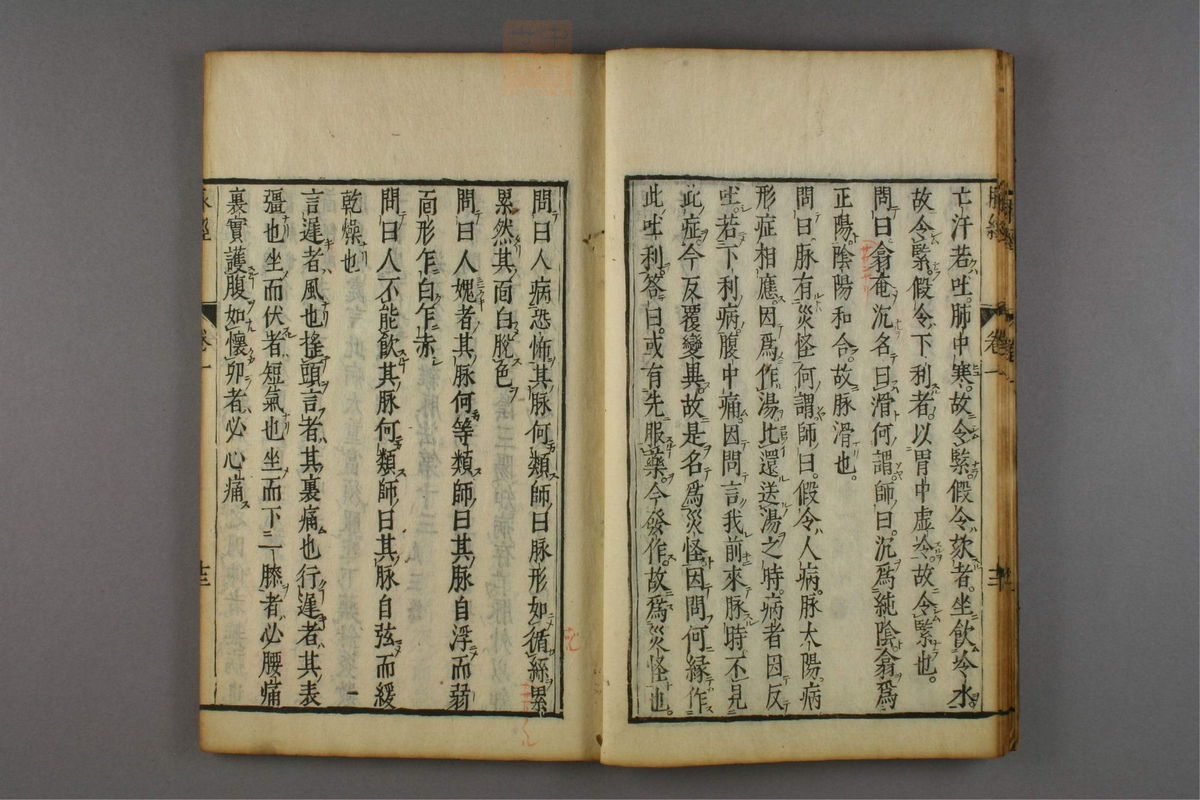 亡汗若吐肺中寒故令緊假令欬者坐飲冷水
故令緊假令下利者以胃中虚冷故令緊也
問曰翕奄沉名曰滑何謂師曰沉爲純陰翕爲
正陽陰陽和合故脉滑也
問曰脉有災怪何謂師曰假令人病脉太陽病
形症相應因爲作湯比還送湯之時病者因反
吐若下利病腹中痛因問言我前來脉時不見
此症今反覆變異故是名爲災怪因問何縁作
此吐利答曰或有先服藥今發作故爲災怪也
脉經
卷一
十三
問曰人病恐怖其脉何類師曰脉形如循絲累
累然其面白脫色
問曰人媿者其脉何等類師曰其脉自浮而弱
面形乍白乍赤
問曰人不能飲其脉何類師曰其脉自弦而緩
乾燥也
言遲者風也搖頭言者其裏痛也行遲者其表
彊也坐而伏者短氣也坐而下一膝者必腰痛
裏實護腹如懷卵者必心痛
脉經
卷一
十三